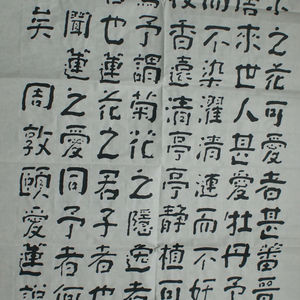 之花可愛者甚蕃
唐來世人甚愛牡丹予
而不染濯清漣而不妖
枝香遠清亭亭靜植可
焉予謂菊花之隱逸者
也蓮花之君子者也
聞蓮之愛同予者何
矣 周敦頤愛蓮說